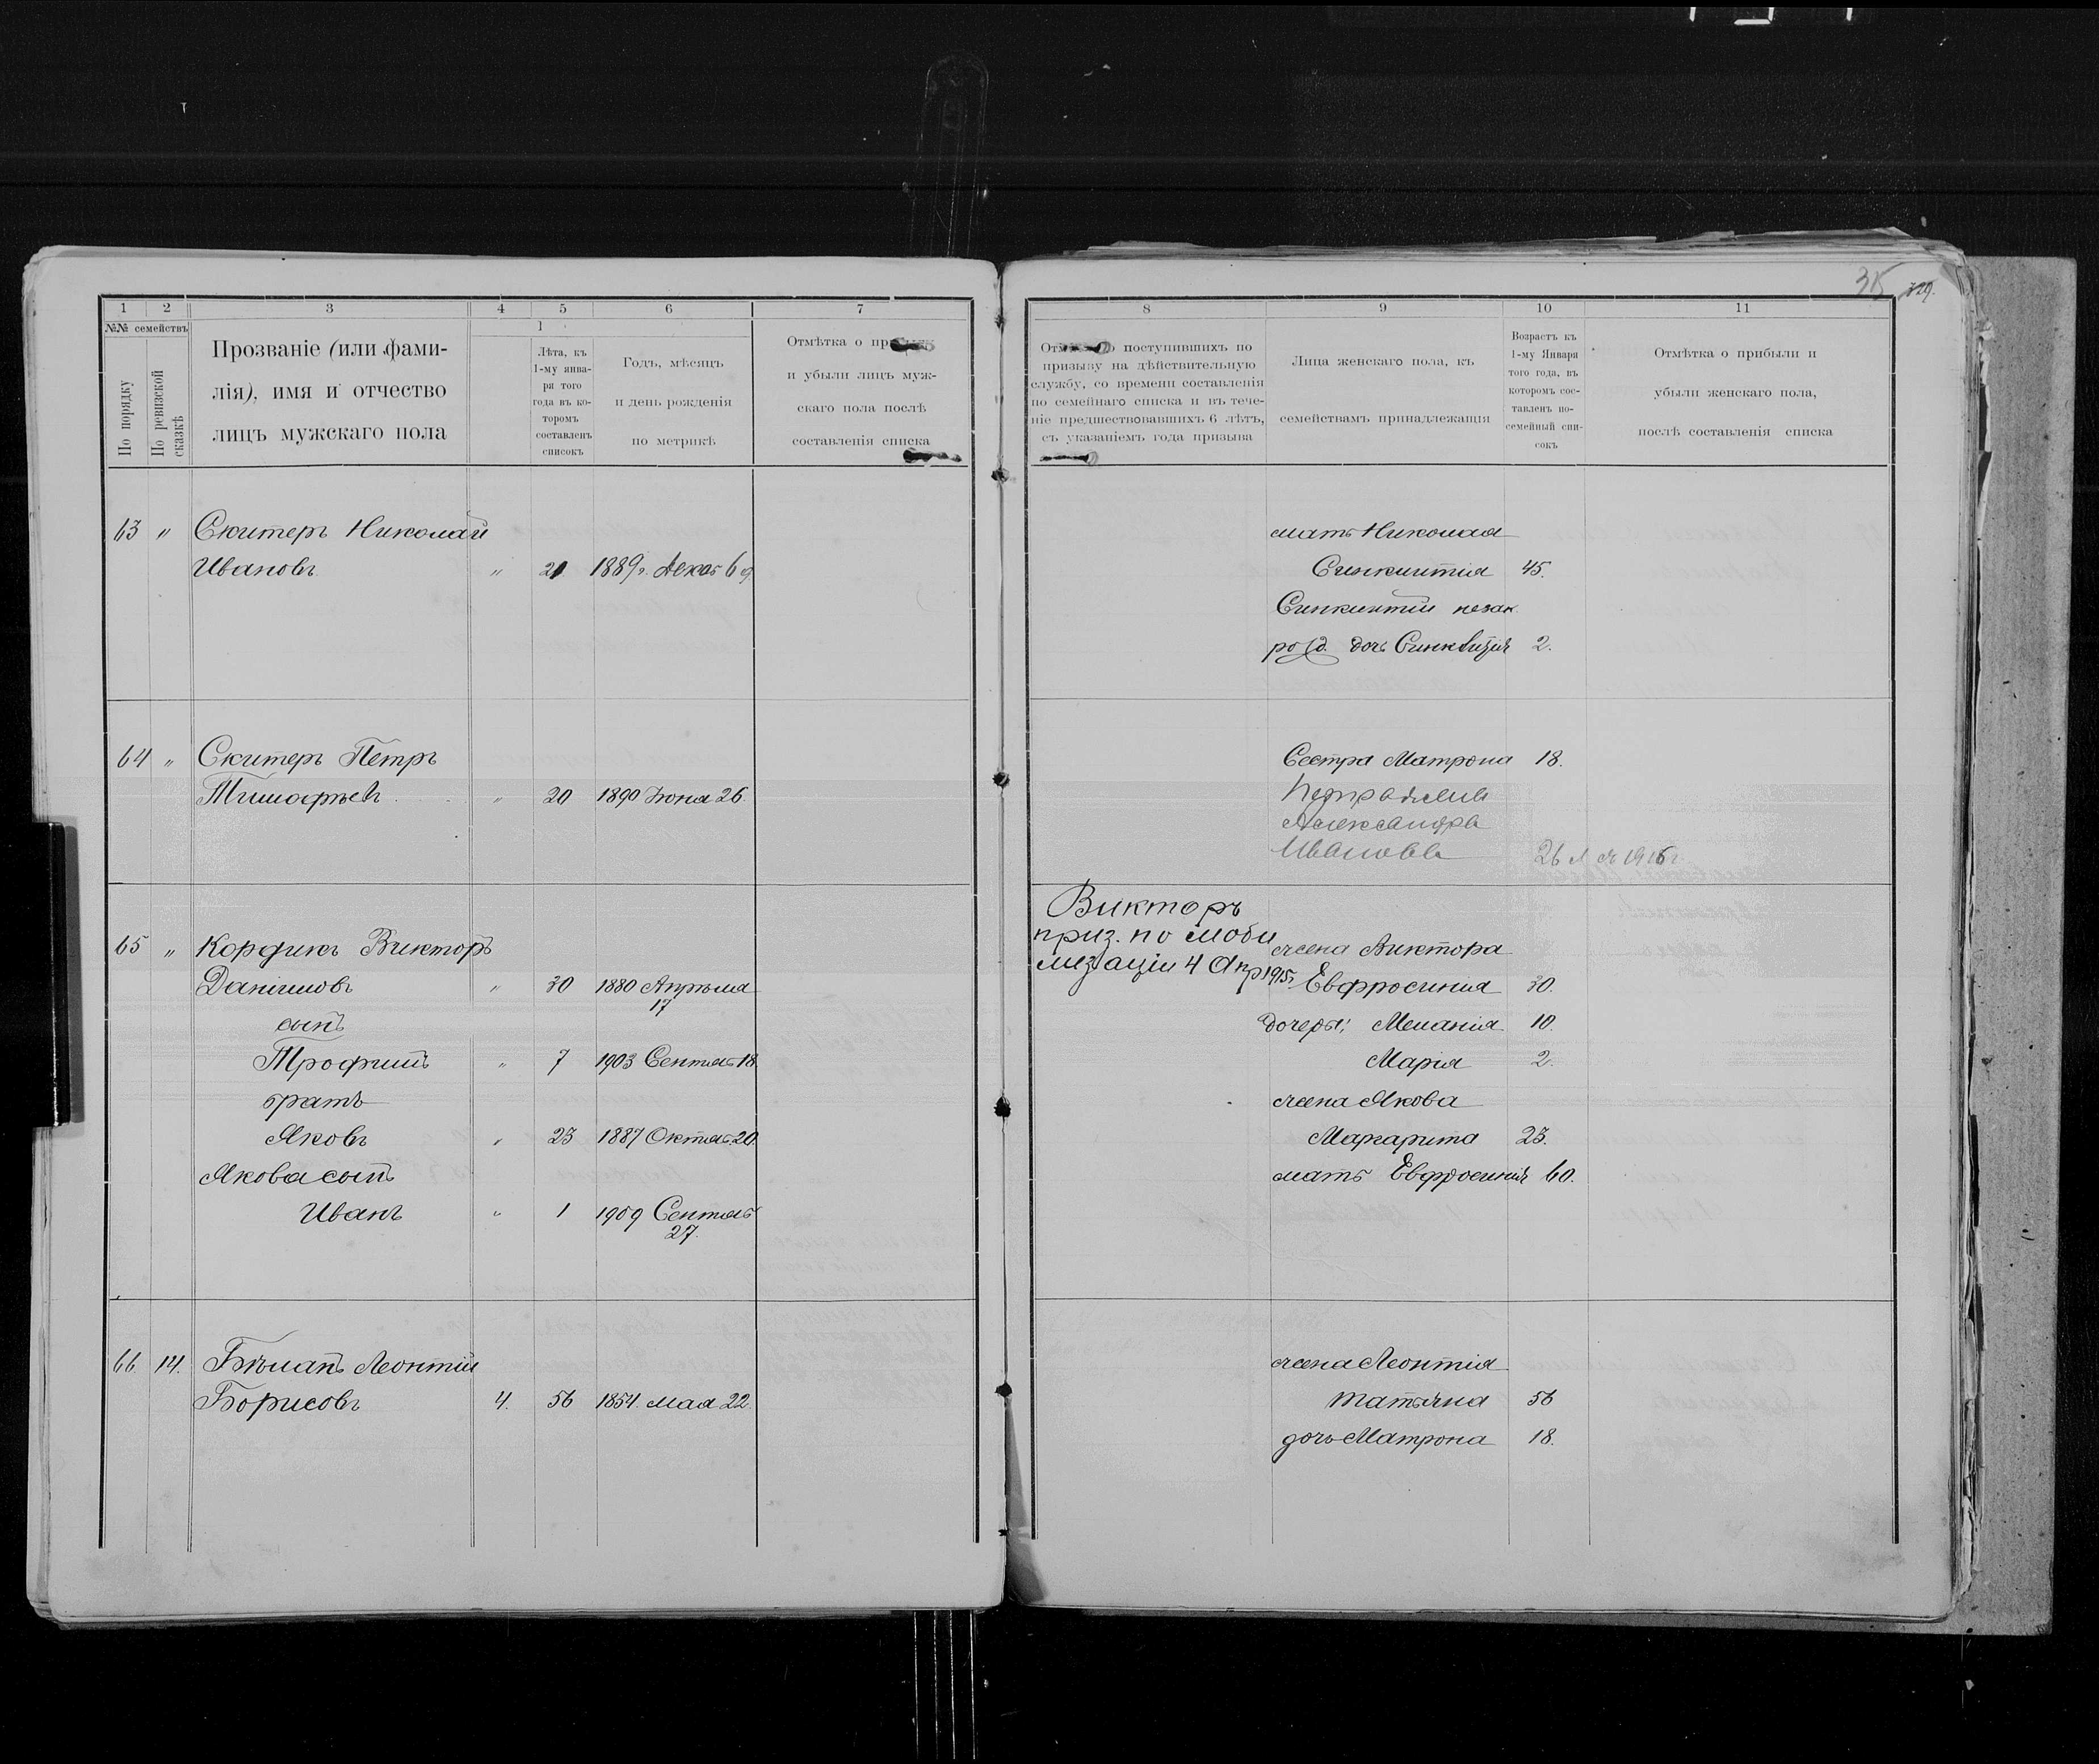 35 329.
1 2 3 4 5 6 7
№№ семействъ
По порядку
По ревизской сказкѣ
Прозваніе (или фами-
лія), имя и отчество
лицъ мужскаго пола
Лѣта, къ
1-му янва-
ря того
года въ ко-
торомъ
составленъ
списокъ
Годъ, мѣсяцъ
и день рожденія
по метрикѣ
Отмѣтка о
и убыли лицъ муж-
скаго пола послѣ
составленія списка
63 " Скитеръ Николай
Ивановъ " 21 1889 г. Декаб 6
64 " Скитеръ Петръ
Тимофѣевъ " 20 1890 Іюня 26
65 " Кордикъ Викторъ
Даніиловъ " 30 1880 Апрѣля
17
сынъ
Трофимъ " 7 1903 Сентяб 18
братъ
Яковъ " 23 1887 Октяб. 20
Якова сынъ
Иванъ " 1 1909 Сентяб
27.
66 14. Бѣланъ Леонтій
Борисовъ 4. 56 1854 мая 22
8 9 10 11
поступившихъ по
призыву на дѣйствительную
службу, со времени составленія
по семейнаго списка и въ тече-
ніе предшествовавшихъ 6 лѣтъ,
съ указаніемъ года призыва
Лица женскаго пола, къ
семействамъ принадлежащія
Возрастъ къ
1-му Января
того года, въ
которомъ сос-
тавленъ по-
семейный спи-
сокъ
Отмѣтка о прибыли и
убыли женскаго пола,
послѣ составленія списка
мать Николая
Синкиитія 45.
Синкиитіи незак.
рожд. дочь 2.
Сестра Матрона 18.
Александра
Иванова 26
Викторъ
приз. по моби
лизаціи 4 Апр 1915 г.
жена Виктора
Евфросинія 30.
дочеры: Меланія 10.
Марія 2.
жена Якова
Маргарита 23.
мать Евфросинія 60.
жена Леонтія
Татьяна 56
дочь Матрона 18.